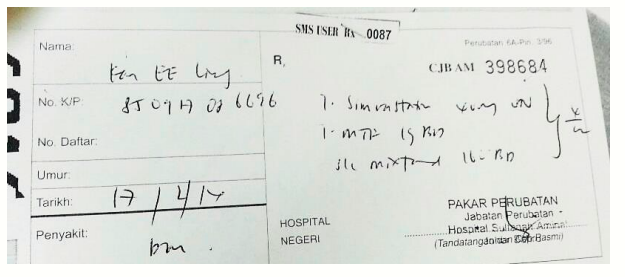 SMS USER Rx 0087
Perubatan 6A-Pin. 3/96
Nama:
R,
CJBAM 398684
No. K/P.
T. Simvastatin 40mg ON
T. MTF 1g BD
No. Daftar:
s/c mixtard 16u BD
Umur:
Tarikh: 17/4/14
PAKAR PERUBATAN
Jabatan Perubatan
Hospital Sultanah Aminah
HOSPITAL
NEGERI
(Tandatangan dan Cop Rasmi)
Penyakit: DM